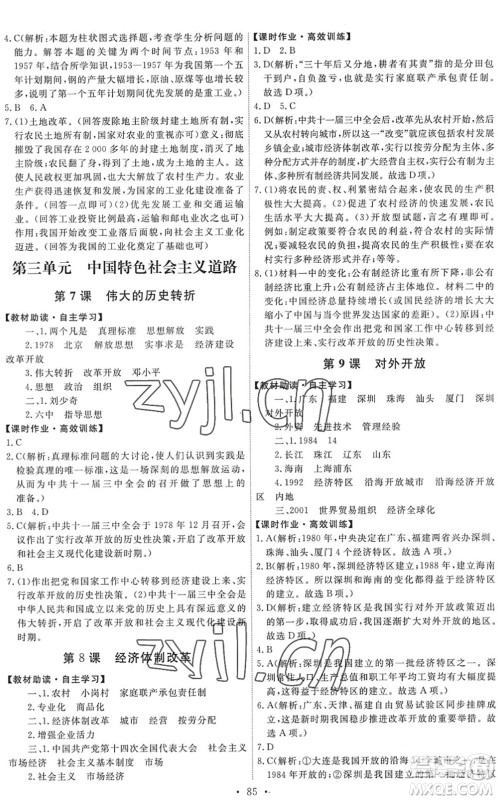 4. C(解析:本题为柱状图式选择题,旨在考查学生分析问题的
能力。解答本题的关键有两个方面:时间节点:1953 年和
1957 年,一个五年计划期间;依据所学知识,我国第一个五
年计划期间,我国优先发展的是重工业。)
5. B　6. A
7. (1)土地改革。(回答废除地主阶级封建土地所有制,实
行农民土地所有制,国家对农业的重视亦可)土地改革
彻底摧毁了我国存在 2 000 多年的封建土地制度,消灭了地
主阶级;农民翻了身,得到了土地,成为土地的主人。这
使人民政权更加巩固,也大大解放了农村生产力。农业
生产获得迅速恢复和发展,为国家的工业化建设准备了
条件。(回答一点即可) (2)优先发展工业和交通运输
业。(回答工业投资比例最大、运输和邮电业次之也可)作
用:我国改变了工业落后的面貌,向社会主义工业化
迈进。(回答为我国的工业化奠定了基础亦可)
第三单元　中国特色社会主义道路
第 7 课　伟大的历史转折
【教材助读·自主学习】
一、1. 两个凡是　真理标准　思想解放　实践
2. 1978　北京　解放思想　实事求是　经济建设
改革开放
3. 伟大转折　改革开放　邓小平
4. 思想　政治　组织
二、1. 刘少奇
2. 六中　指导思想
【课时作业·高效训练】
1. C
2. C(解析:真理标准问题的大讨论,使人们认识到实践是
检验真理的唯一标准,这是一场深刻的思想解放运动,
为中共十一届三中全会的召开作了思想上的准备。故
选 C 项。)
3. B　4. D
5. C(解析:中共十一届三中全会于 1978 年 12 月召开,会
议作出了实行改革开放的历史性决策,开启了改革开放
和社会主义现代化建设新时期。)
6. B
7. (1)作出了把党和国家工作中心转移到经济建设上来,
实行改革开放的历史性决策。 (2)中共十一届三中全会是
中华人民共和国成立以来党的历史上具有深远意义的
伟大转折。开启了改革开放和社会主义现代化建设新
时期。
第 8 课　经济体制改革
【教材助读·自主学习】
一、1. 农村　小岗村　家庭联产承包责任制
2. 专业化　商品化
二、1. 国企改革　城市　经营　按劳分配
2. 增强企业活力
三、1. 中国共产党第十四次全国代表大会　社会主义
市场经济　社会主义　市场经济　按劳分配
2. 社会主义　市场
【课时作业·高效训练】
1. D　2. B
3. D(解析:“三十年后又分地,耕者有其责”指的是分田包
干到户,自负盈亏,也就是实行家庭联产承包责任制。
故选 D 项。)
4. D　5. C
6. D(解析:中共十一届三中全会以后,改革先从农村开始
又从农村转向城市,所以这一“改变”就应该包括农村发展
乡镇企业;城市经济体制改革,打破单一的公有制,实行
多种分配方式并存的制度,扩大经营自主权和开展对外
经济技术的广泛合作与交流。故选 D 项。)
7. (1)将农民的责、权、利紧密结合起来,使农民的生产积
极性大大提高。(2)促进了农村经济的快速发展,农民
生活水平大大提高。(3)扩大开放,发展市场经济,促进
经济迅速发展。
8. (1)材料一中的变化:以公有制经济为主体,多种所有
制经济共同发展。材料二中的变化:公有制经济比重下
降,非公有制经济比重上升,外资经济比重大,所有制
呈现多样化。材料三中的变化:农民的生活水平日益提
高,农民购买农业生产资料的能力不断提高。 (2)材料
二中 1978 年与 2001 年情况发生变化的根本原因是中
共十一届三中全会把党和国家工作中心转移到经济建
设上来,实行改革开放。
第 9 课　对外开放
【教材助读·自主学习】
一、1. 广东　福建　深圳　珠海　汕头　厦门　深圳
对外开放
2. 外资　先进技术　管理经验
二、1. 1984　14
2. 长江　珠江　辽东　山东
3. 海南　上海浦东
4. 1992　经济特区　沿海开放城市　沿海经济开放
区　内地
三、2001　世界贸易组织　经济全球化
【课时作业·高效训练】
1. A(解析:1980 年,中央决定在广东、福建两省兴办深圳、
珠海、汕头、厦门 4 个经济特区;1988 年,兴办海南经济
特区。故选 A 项。)
2. B(解析:1980 年深圳的变化和 1988 年海南的变化都是
由于国家在那里建立了经济特区。故选 B 项。)
3. C(解析:材料反映的是我国实行对外开放政策迈出的
步伐,体现了我国逐渐扩大开放、融入世界的趋势。故
选 C 项。)
4. B
5. A(解析:深圳是我国建立的第一个经济特区,深圳国有经
济单位生产总值和职工平均工资均与设立经济特区有
直接关系。故选 A 项。)
6. A(解析:广东、天津、福建自由贸易试验区同步挂牌,
标志着新时期我国稳步推进改革开放的重要措施。故选
A 项。)
7. D
8. C(解析:①大连是我国开放的沿海
1984 年开放的;②深圳是我国建立的经济特区之一,
85
zyjl.cn
zyjl.cn
MXQE.COM